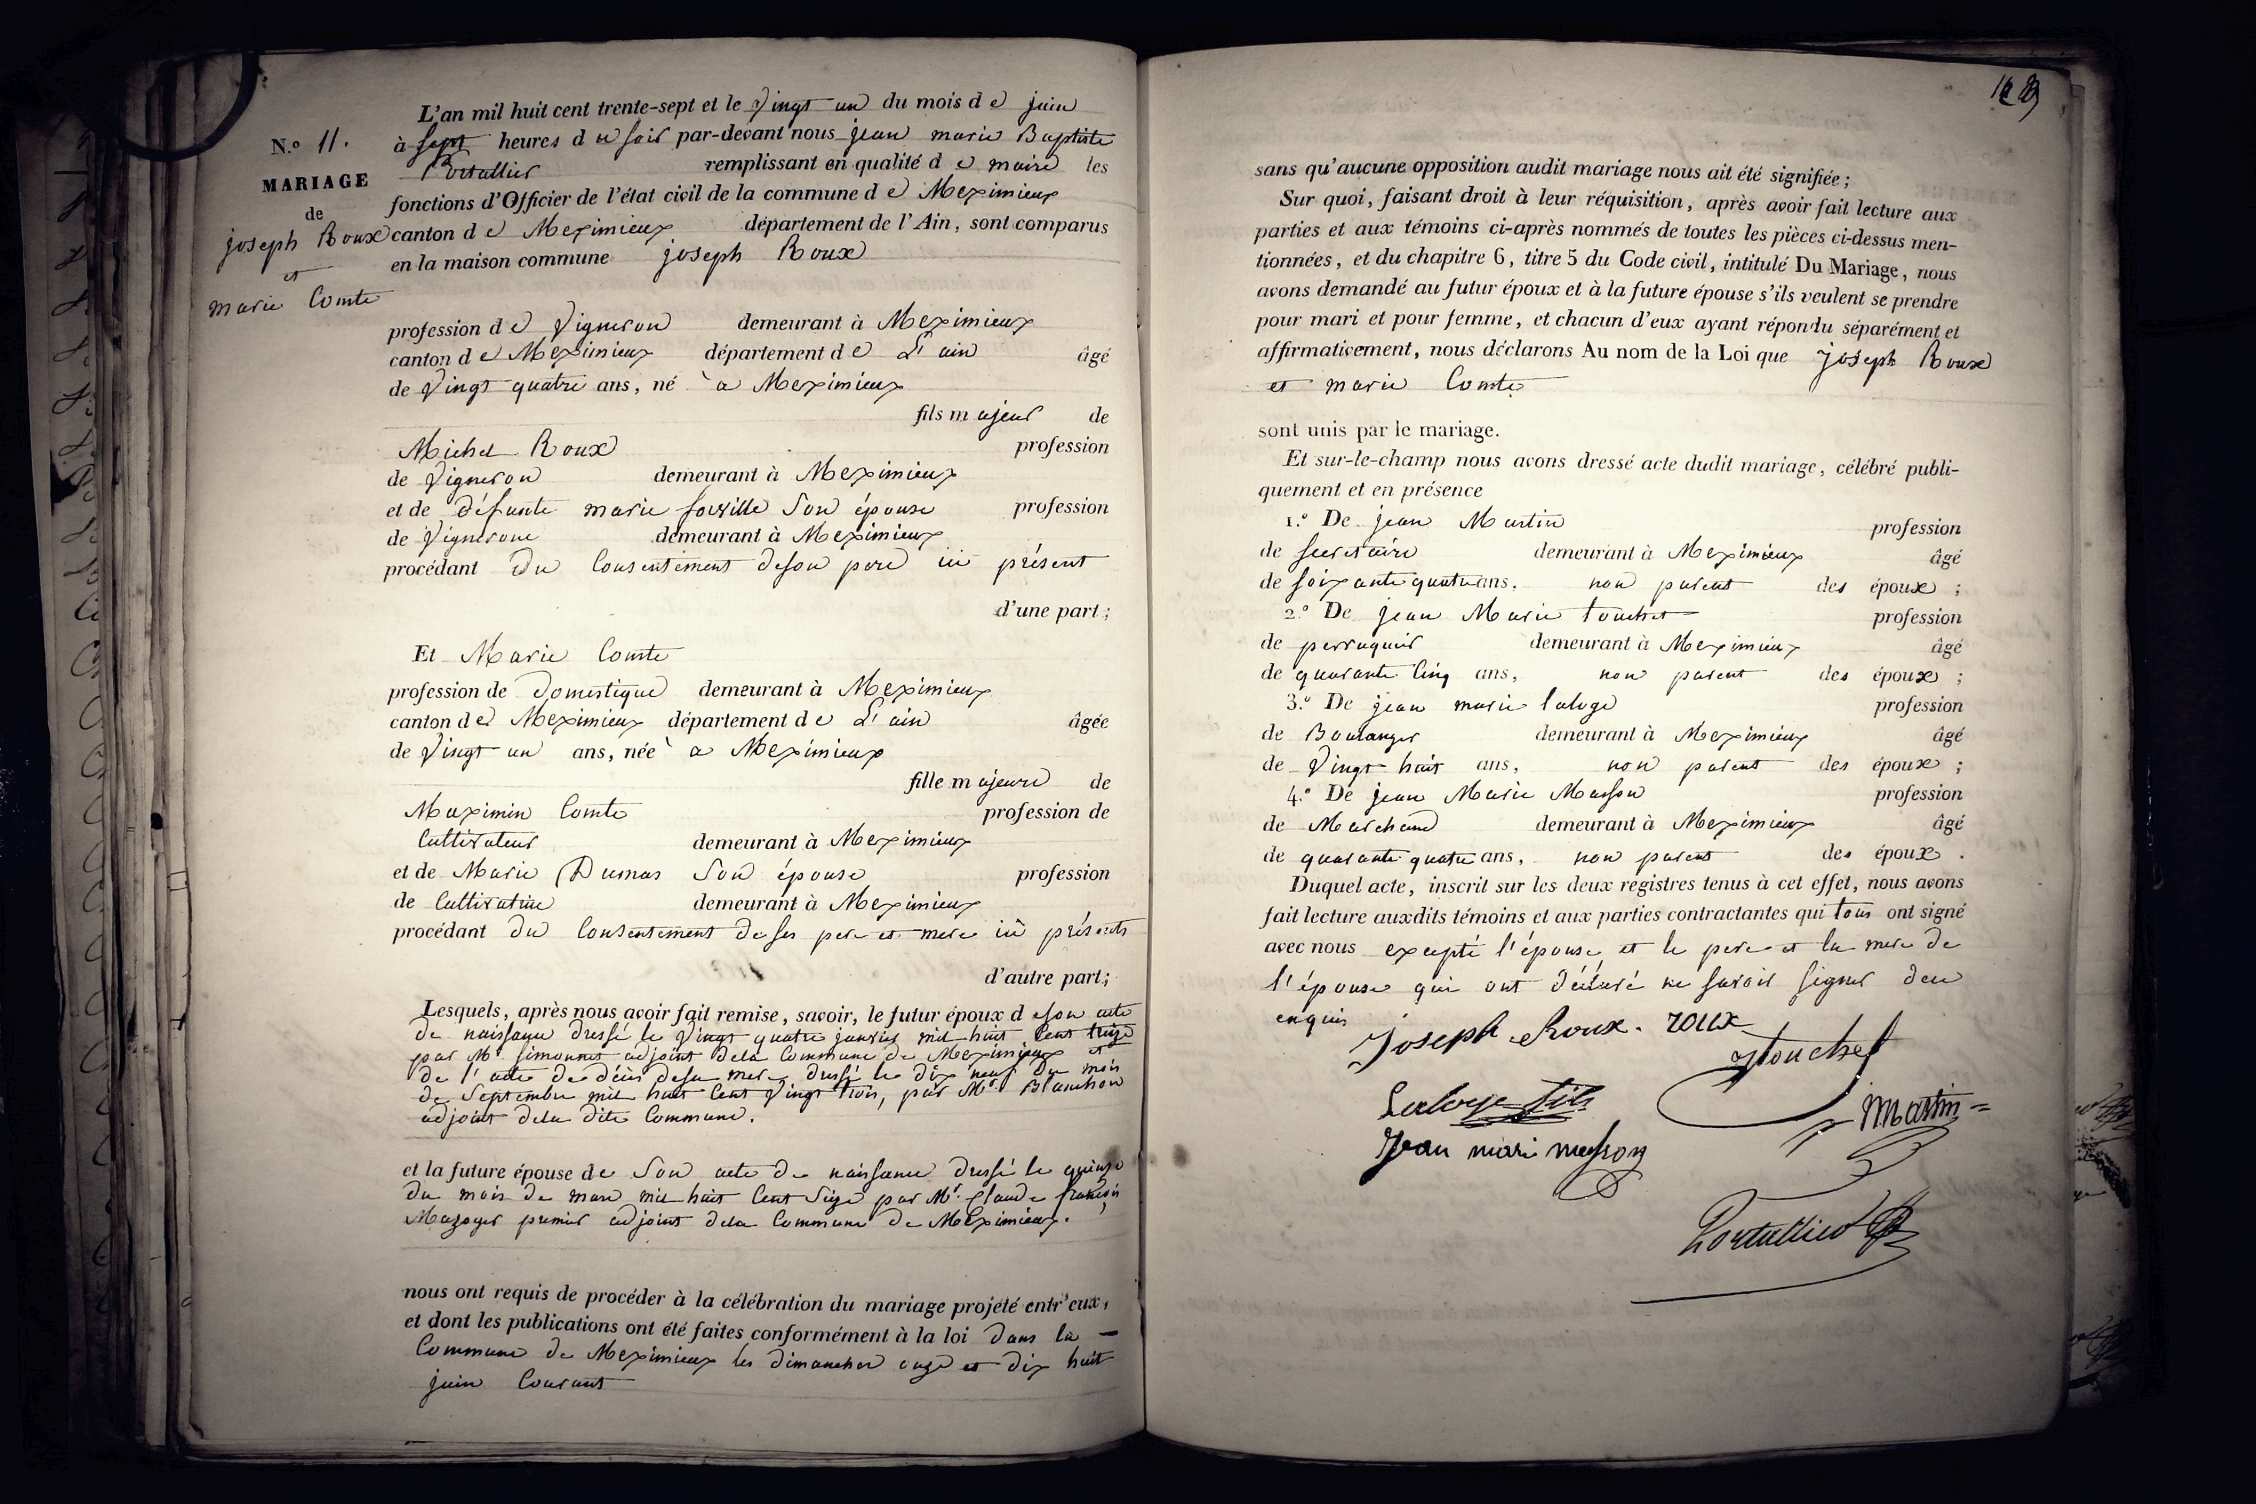 N.o 11.
MARIAGE
de
joseph Roux
et
marie Comte
L'an mil huit cent trente-sept et le Vingt un du mois de juin
à sept heures du soir par-devant nous jean marie Baptiste
Portallier remplissant en qualité de maire les
fonctions d'Officier de l'état civil de la commune de Meximieux
canton de Meximieux département de l'Ain, sont comparus
en la maison commune joseph Roux
profession de Vigneron demeurant à Meximieux
canton de Meximieux département de L'ain âgé
de Vingt quatre ans, né à Meximieux
fils majeur de
Michel Roux profession
de Vigneron demeurant à Meximieux
et de défunte marie son épouse profession
de Vigneronne demeurant à Meximieux
procédant du Consentement de son pere ici présent
d'une part;
Et Marie Comte
profession de domestique demeurant à Meximieux
canton de Meximieux département de L'ain âgée
de Vingt un ans, née à Meximieux
fille majeure de
Maximin Comte profession de
Cultivateur demeurant à Meximieux
et de Marie Dumas Son épouse profession
de Cultivatrice demeurant à Meximieux
procédant du Consentement de ses pere et mere ici présents
d'autre part;
Lesquels, après nous avoir fait remise, savoir, le futur époux de son acte
de naissance dressé le Vingt quatre janvier mil huit Cent treize
par Mr. Simonnet adjoint dela Commune de Meximieux et
de l'acte de décès desa mere dressé le dix neuf du mois
de Septembre mil huit Cent Vingt trois, par Mr. Blanchon
adjoint dela dite Commune.
et la future épouse de Son acte de naissance dressé le quinze
du mois de mars mil huit Cent Seize par Mr. Claude françois
Mazoyer premier adjoint dela Commune de Meximieux.
nous ont requis de procéder à la célébration du mariage projeté entr'eux,
et dont les publications ont été faites conformément à la loi dans la
Commune de Meximieux les dimanches onze et dix huit
juin Courant
sans qu'aucune opposition audit mariage nous ait été signifiée;
Sur quoi, faisant droit à leur réquisition, après avoir fait lecture aux
parties et aux témoins ci-après nommés de toutes les pièces ci-dessus men-
tionnées, et du chapitre 6, titre 5 du Code civil, intitulé Du Mariage, nous
avons demandé au futur époux et à la future épouse s'ils veulent se prendre
pour mari et pour femme, et chacun d'eux ayant répondu séparément et
affirmativement, nous déclarons Au nom de la Loi que joseph Roux
et marie Comte
sont unis par le mariage.
Et sur-le-champ nous avons dressé acte dudit mariage, célébré publi-
quement et en présence
1.o De jean Martin profession
de secretaire demeurant à Meximieux âgé
de soixante quatre ans, non parent des époux;
2.o De jean Marie touchet profession
de perruquier demeurant à Meximieux âgé
de quarante Cinq ans, non parent des époux;
3.o De jean marie laloge profession
de Boulanger demeurant à Meximieux âgé
de Vingt huit ans, non parent des époux;
4.o De jean Marie Masson profession
de Marchand demeurant à Meximieux âgé
de quarante quatre ans, non parent des époux.
Duquel acte, inscrit sur les deux registres tenus à cet effet, nous avons
fait lecture auxdits témoins et aux parties contractantes qui tous ont signé
avec nous excepté l'épouse, et le pere et la mere de
l'épouse qui ont déclaré ne savoir signer deu
enquis
Joseph Roux. roux
Touchet
Laloge fils
Martin
Jean mari masson
Portallier